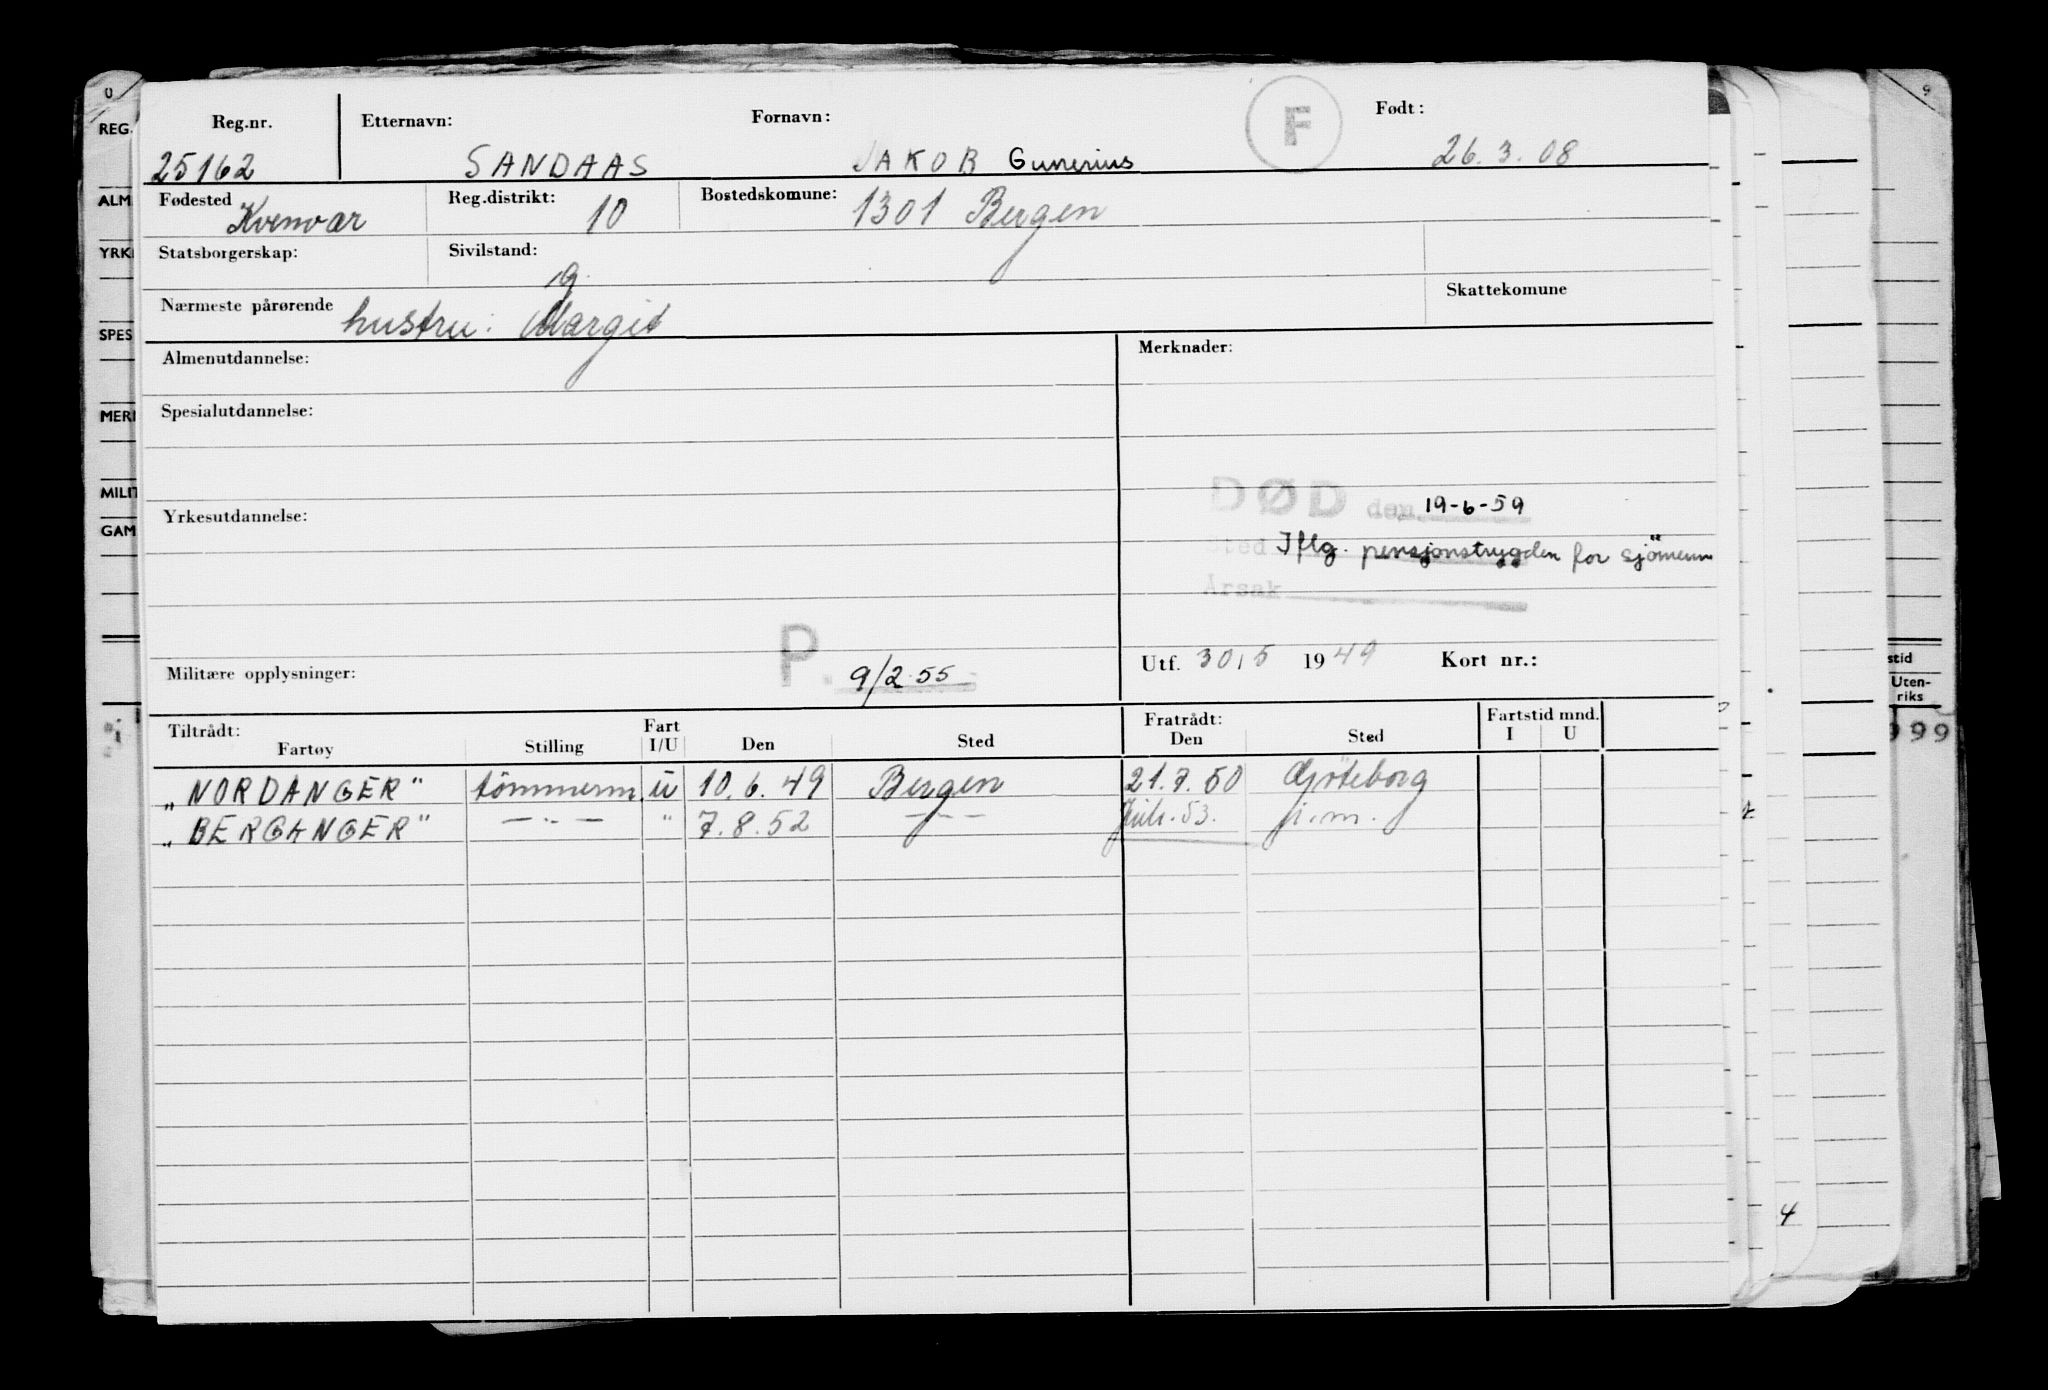 O
9
REG.
ALM
YRK
SPES
MERI
MILIT
GAM
Reg.nr. Etternavn: Fornavn: F Født:
25162 SANDAAS JAKOB Gunerius 26.3.08
Fødested Kvenvær Reg.distrikt: 10 Bostedskomune: 1301 Bergen
Statsborgerskap: Sivilstand: g.
Nærmeste pårørende hustru: Margit Skattekomune
Almenutdannelse: Merknader:
Spesialutdannelse:
DØD den 19-6-59
Yrkesutdannelse:
Sted Iflg. pensjonstrygden for sjömenn
Årsak
P. 9/2-55
Militære opplysninger: Utf. 30/5 1949 Kort nr.:
stid
Uten-
riks
999
Tiltrådt: Fart Fratrådt: Fartstid mnd.
Fartøy Stilling I/U Den Sted Den Sted I U
"NORDANGER" tömmerm. u 10.6.49 Bergen 21.7.50 Gjöteborg
"BERGANGER" —"— " 7.8.52 —"— Juli.53. p.m.
4